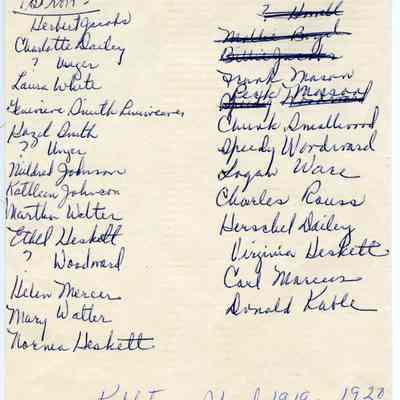 Herbert Jacobs
Charlotte Dailey
? Unger
Laura White
Genevieve Smith
Hazel Smith
?? Unger
Mildred Johnson
Kathleen Johnson
Martha Walter
Ethel Heskett
? Woodward
Helen Mercer
Mary Walter
Norma Heskett
? Howell
Mollie Boyd
Billie Jacobs
Frank Mason
Chunk Smallwood
Speedy Woodward
Logan Ware
Charles Rouss
Herschel Dailey
Virginia Heskett
Carl Marcus
Donald Kable
1919 - 1920